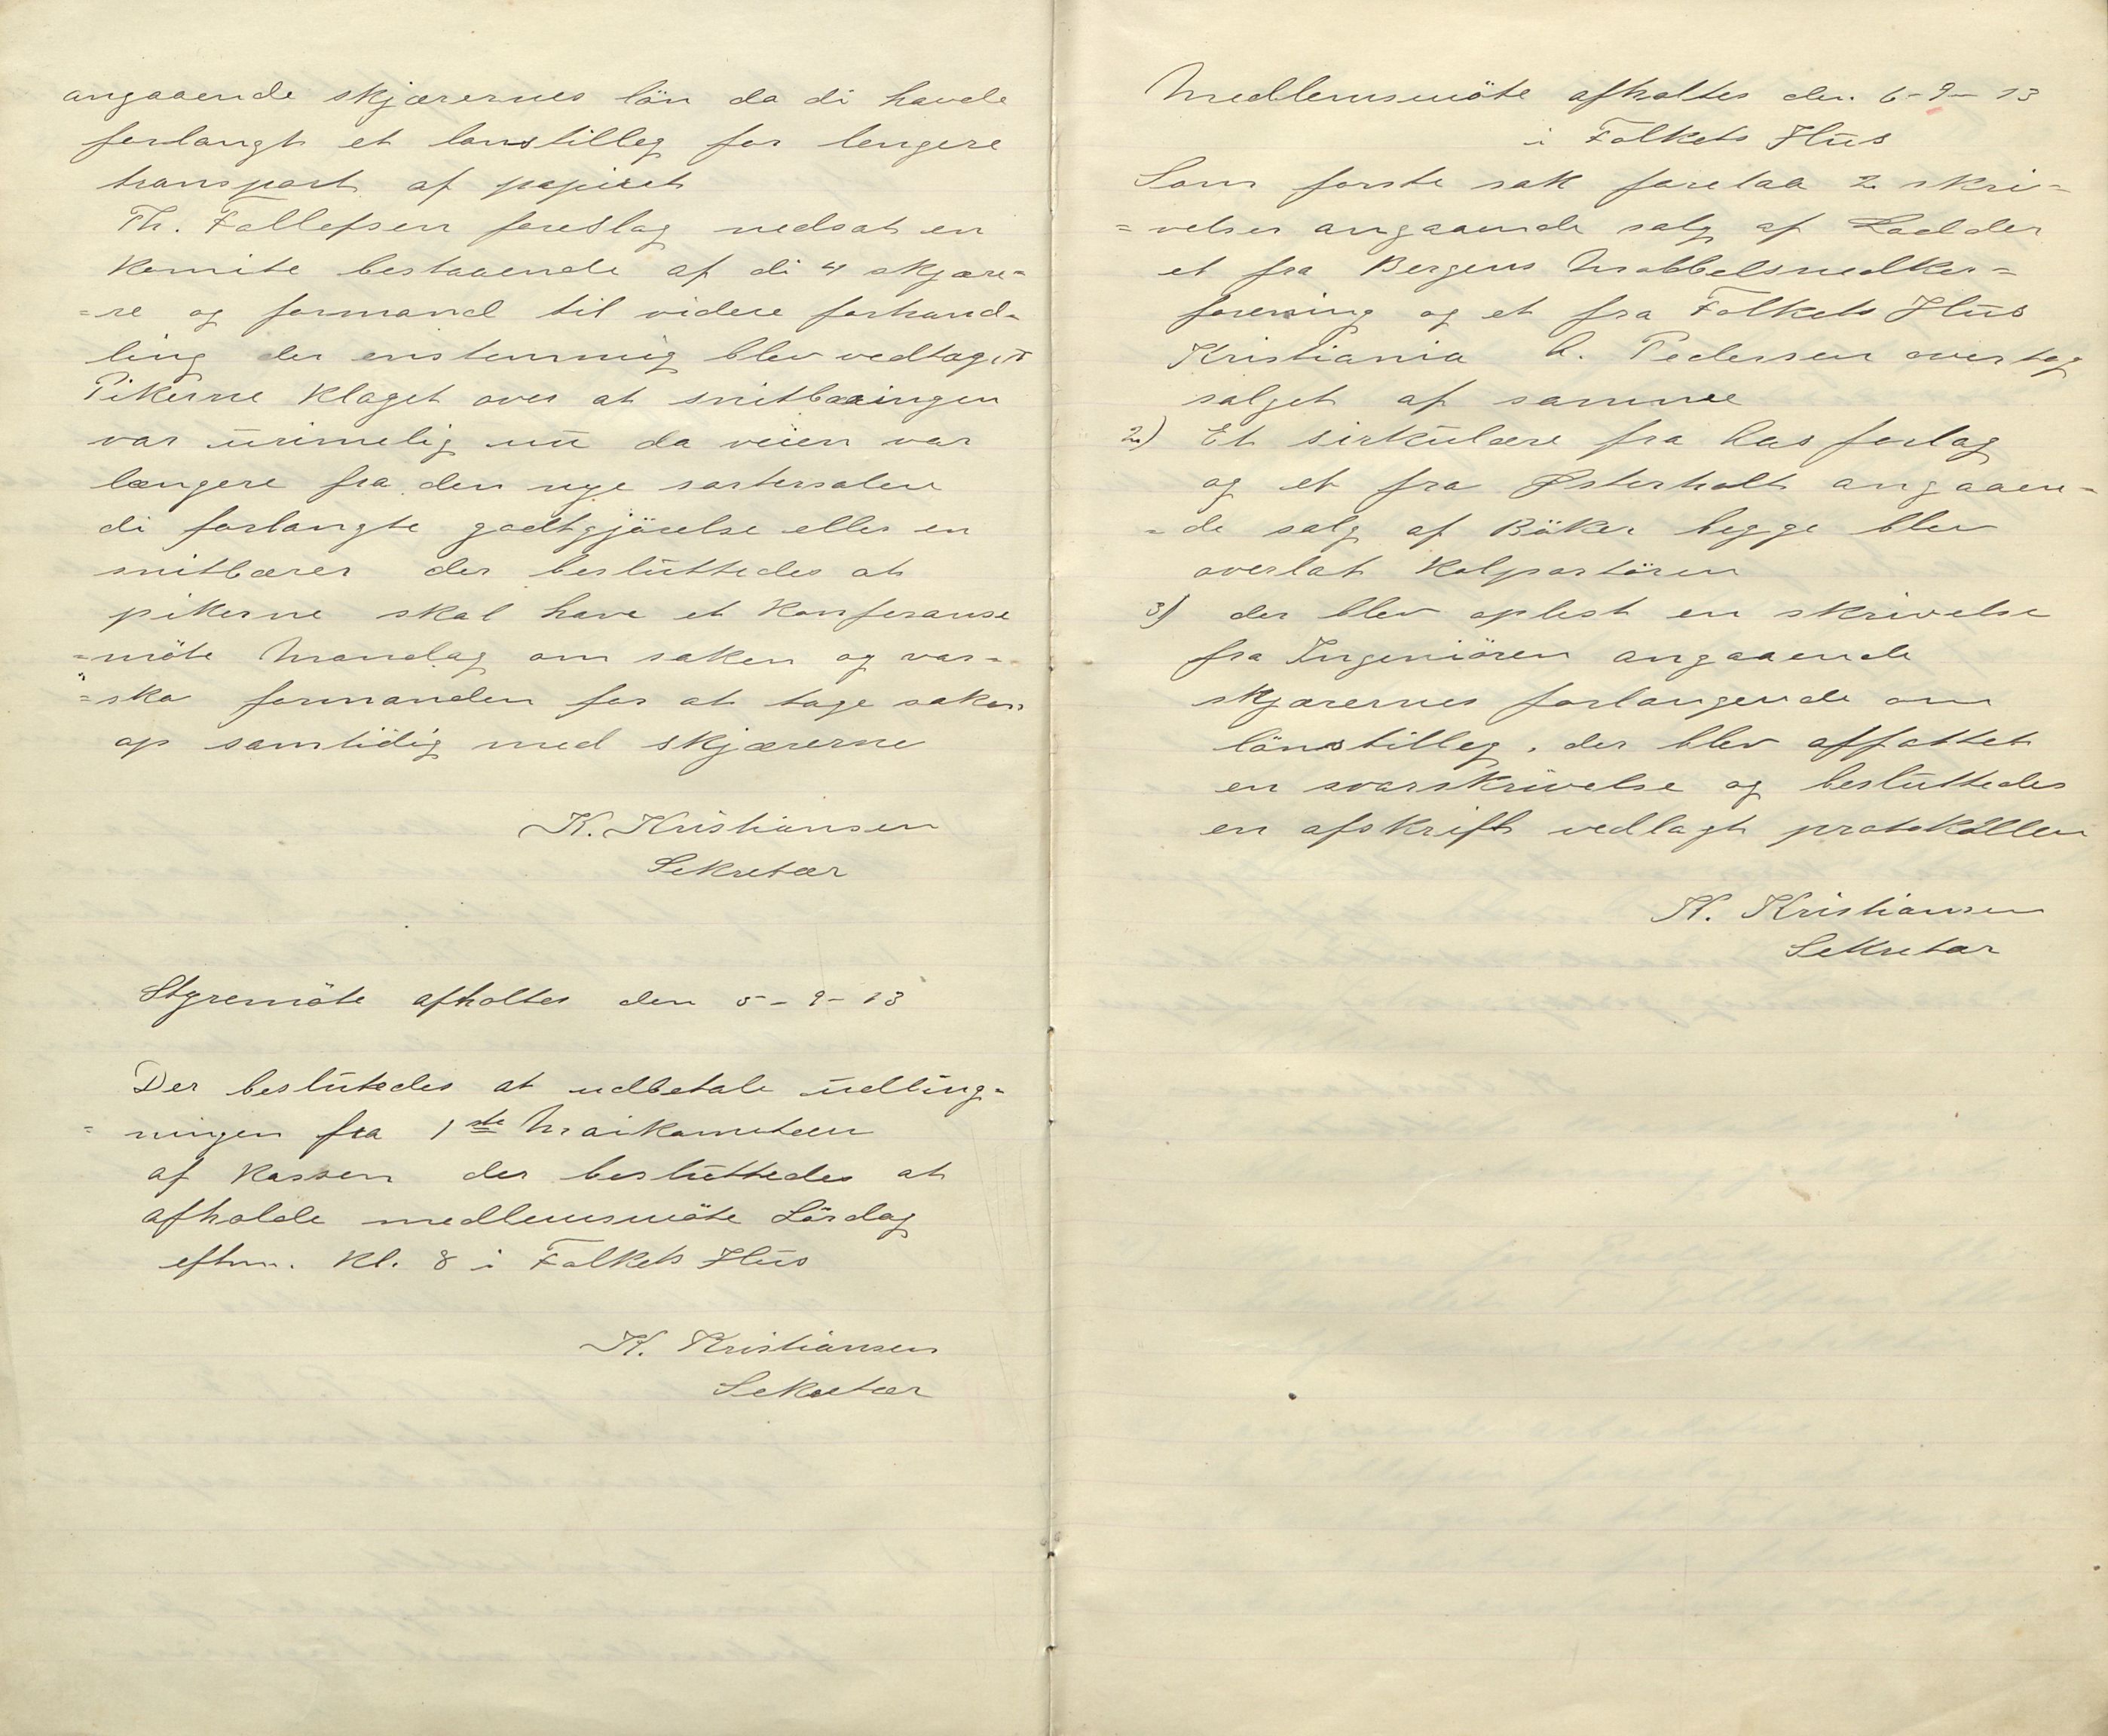 angaaende skjærernes lön da di havde
forlangt et lonstilleg for lengere
transport af papiret
Th. Tollefsen foreslag nedsat en
Komite bestaaende af di 4 skjære=
=re og formand til videre forhand=
ling der enstemmig blev vedtaget
Pikerne Klaget over at snitbæringen
var urimelig nu da veien var
længere fra den nye sortersalen
di forlangte godtgjörelse eller en
snitbærer der besluttedes at
pikerne skal have et Konferanse
=möte Mandag om saken og var=
=sko formanden for at tage saken
op samtidig med skjærerne
K. Kristiansen
Sekretær
Styremöte afholtes den 5-9-13
Der beslutedes at udbetale udling=
=ningen fra 1ste Maikometeen
af Kassen der besluttedes at
afholde medlemsmöte Lördag
eftm. Kl. 8 i Folkets Hus
K. Kristiansen
Sekretær
Medlemsmöte afholtes den 6-9-13
i Folkets Hus
Som forste sak forelaa 2 skri=
=velser angaaende salg af Lodder
et fra Bergens Mobbelsnedker=
forening og et fra Folkets Hus
Kristiania A. Pedersen overtog
salget af samme
2) Et sirkulære fra forlag
og et fra Østerholt angaaen=
=de salg af Böker begge blev
overlat Kolportören
3) der blev oplest en skrivelse
fra Ingeniören angaaende
skjærernes forlangende om
lönstilleg. der blev affattet
en svarskrivelse og besluttedes
en afskrift vedlagt protokollen
K. Kristiansen
Sekretær